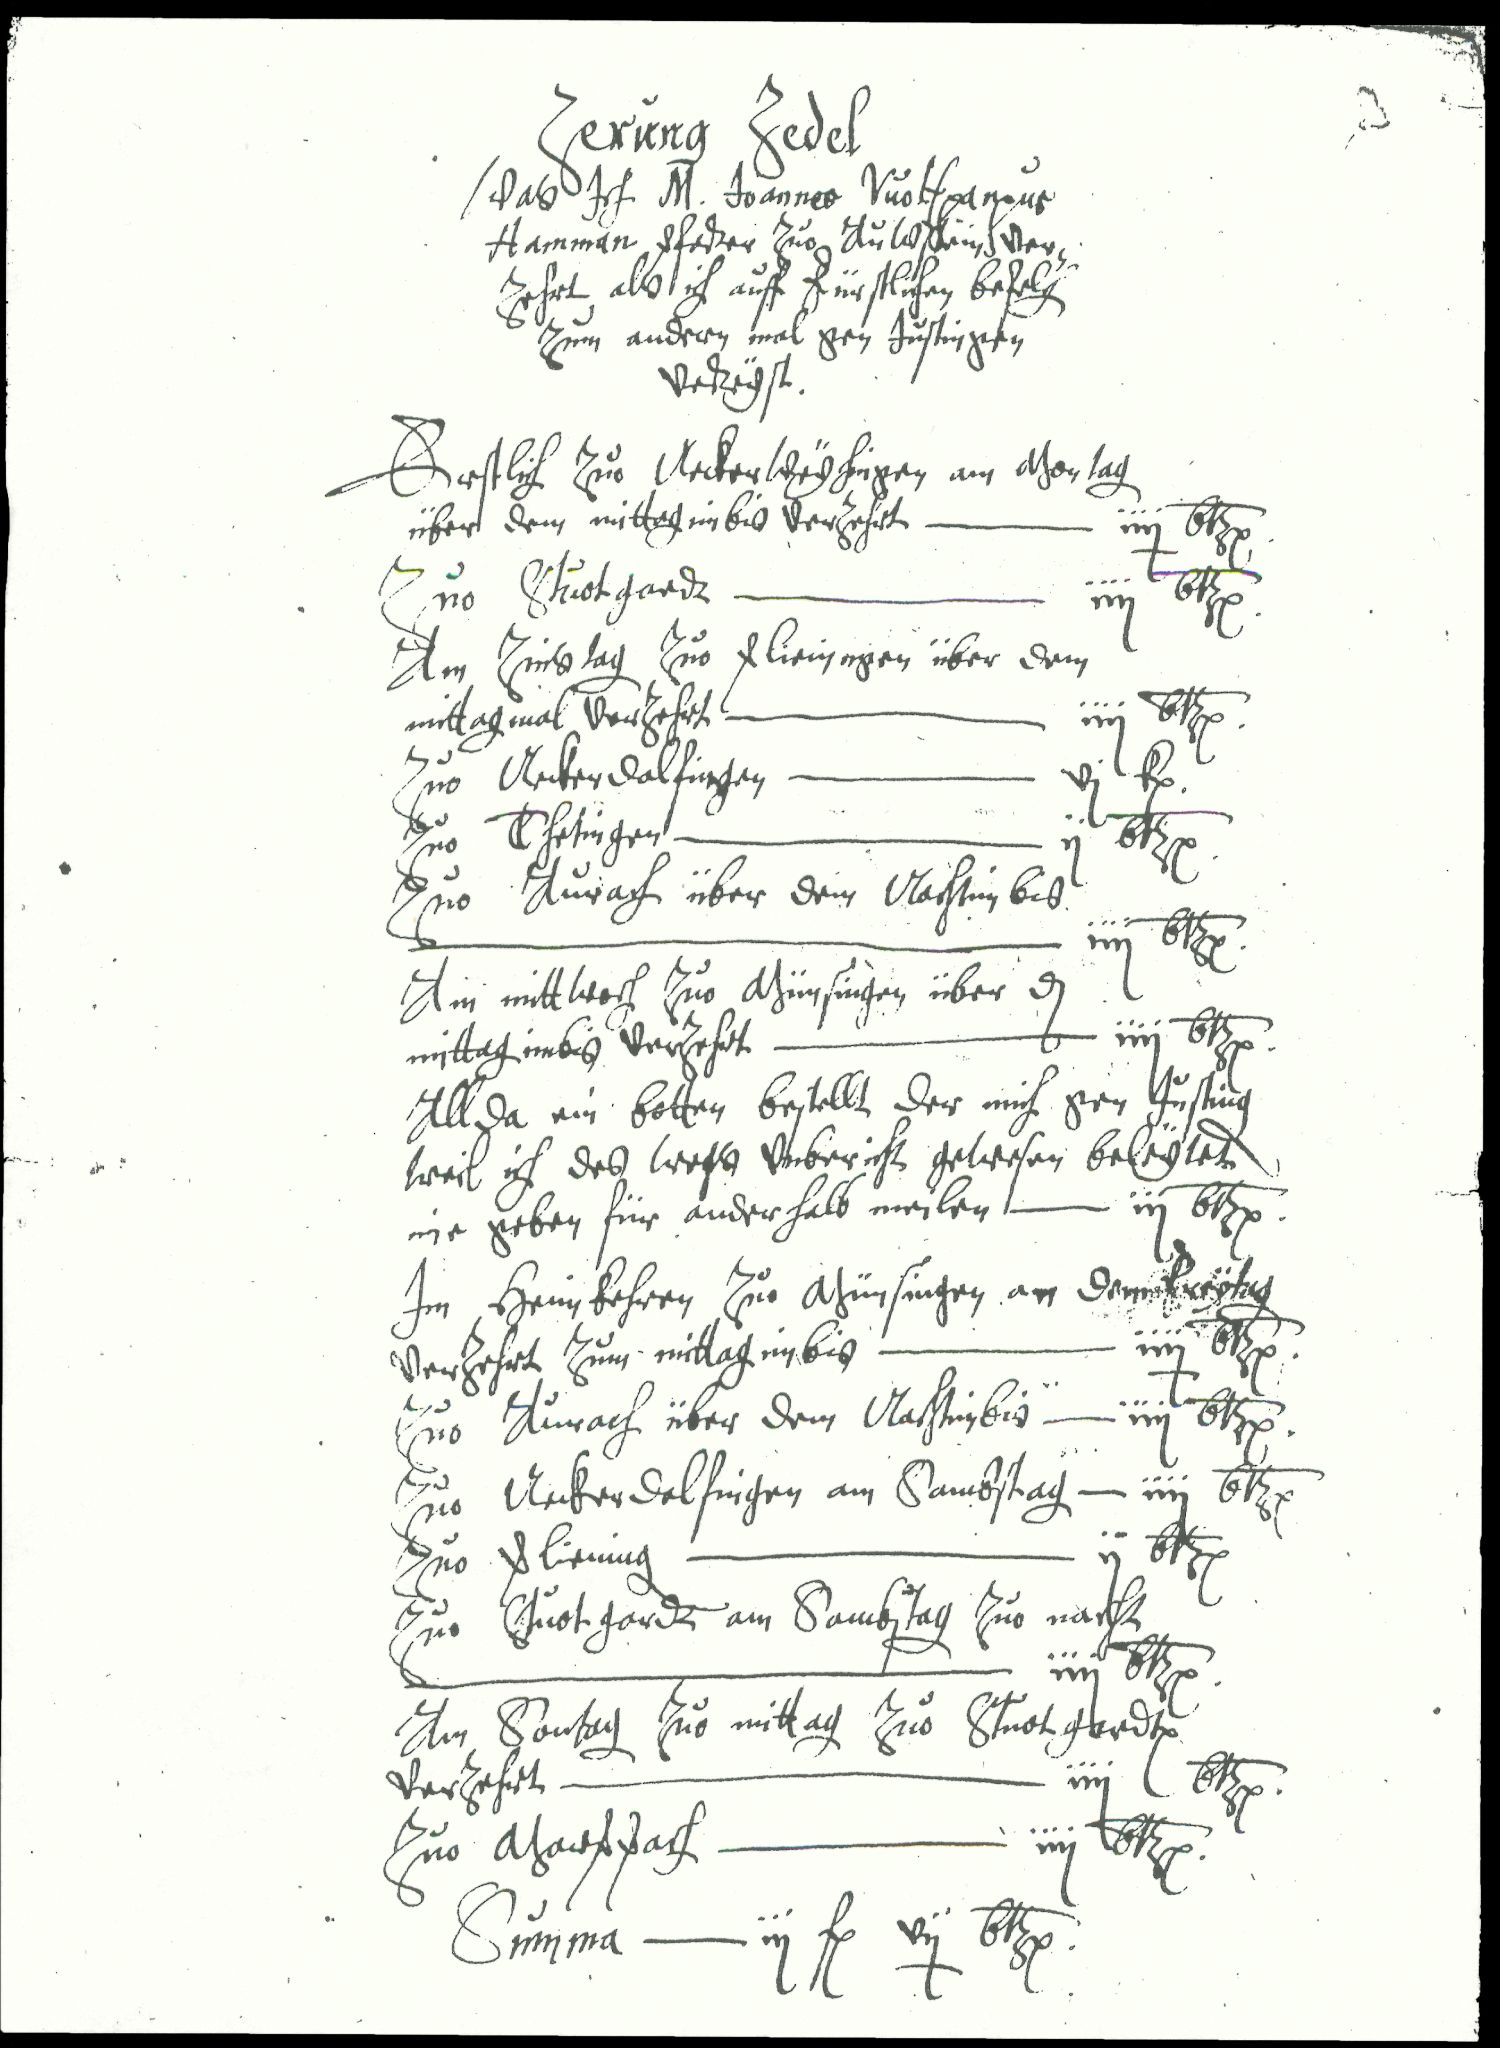 Zerung Zedel
das Ich M. Joannes Vuolfgangus
Hamman pfarer zuo Auwstein ver¬
zehrt als ich auff Fürstlichen befelch
zum andern mal gen Justingen
verreyst.
Erstlich zuo Neckerweyhingen am Montag
über dem mittag imbis verzehrt — iiij btz.
Zuo Stuotgardt — iiij btz.
Am Zinstag zuo Plieningen über dem
mittagmal verzehrt — iiij btz.
Zuo Neckerdalfingen — vj kr.
Zuo Thetingen — ij btz.
Zuo Aurach über dem Nachtimbis
— iiij btz.
Am mittwoch zuo Münsingen über dem
mittag imbis verzehrt — iiij btz.
Allda ein botten bestellt der mich gen Justing
weil ich des wegs unbericht gewesen beleytet
im geben für anderhalb meilen — iij btz.
Im Heimkehren zuo Münsingen am dem Freytag
verzehrt zum mittag imbis — iiij btz.
Zuo Aurach über dem Nachtimbis — iiij btz.
Zuo Neckerdelfingen am Sambstag — iiij btz
Zuo Pliening — ij btz
Zuo Stuotgardt am Sambstag zuo nacht
— iiij btz.
Am Sontag zuo mittag zuo Stuotgardt
verzehrt — iiij btz.
Zuo Marppach — iiij btz.
Summa — iij fl vij btz.